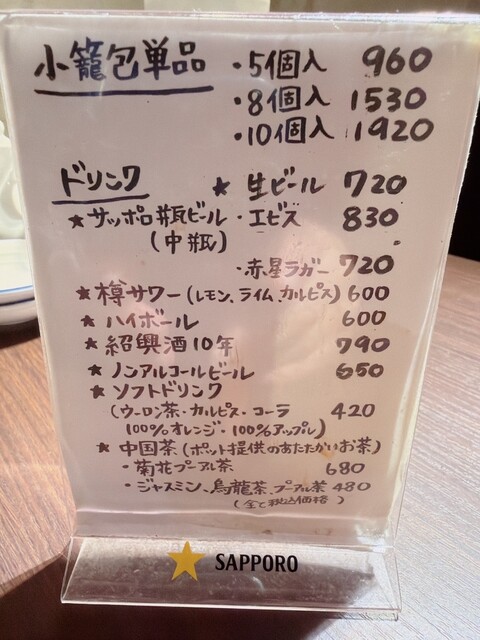 小籠包単品 ・5個入 960
・8個入 1530
・10個入 1920
ドリンク ★ 生ビール 720
★サッポロ瓶ビール・エビス 830
(中瓶)
・赤星ラガー 720
★樽サワー(レモン、ライム、カルピス) 600
★ハイボール 600
★紹興酒10年 790
★ノンアルコールビール 650
★ソフトドリンク
(ウーロン茶・カルピス・コーラ 420
100%オレンジ・100%アップル)
★中国茶(ポット提供のあたたかいお茶)
・菊花プーアル茶 680
・ジャスミン、烏龍茶、プーアル茶 480
(全て税込価格)
SAPPORO